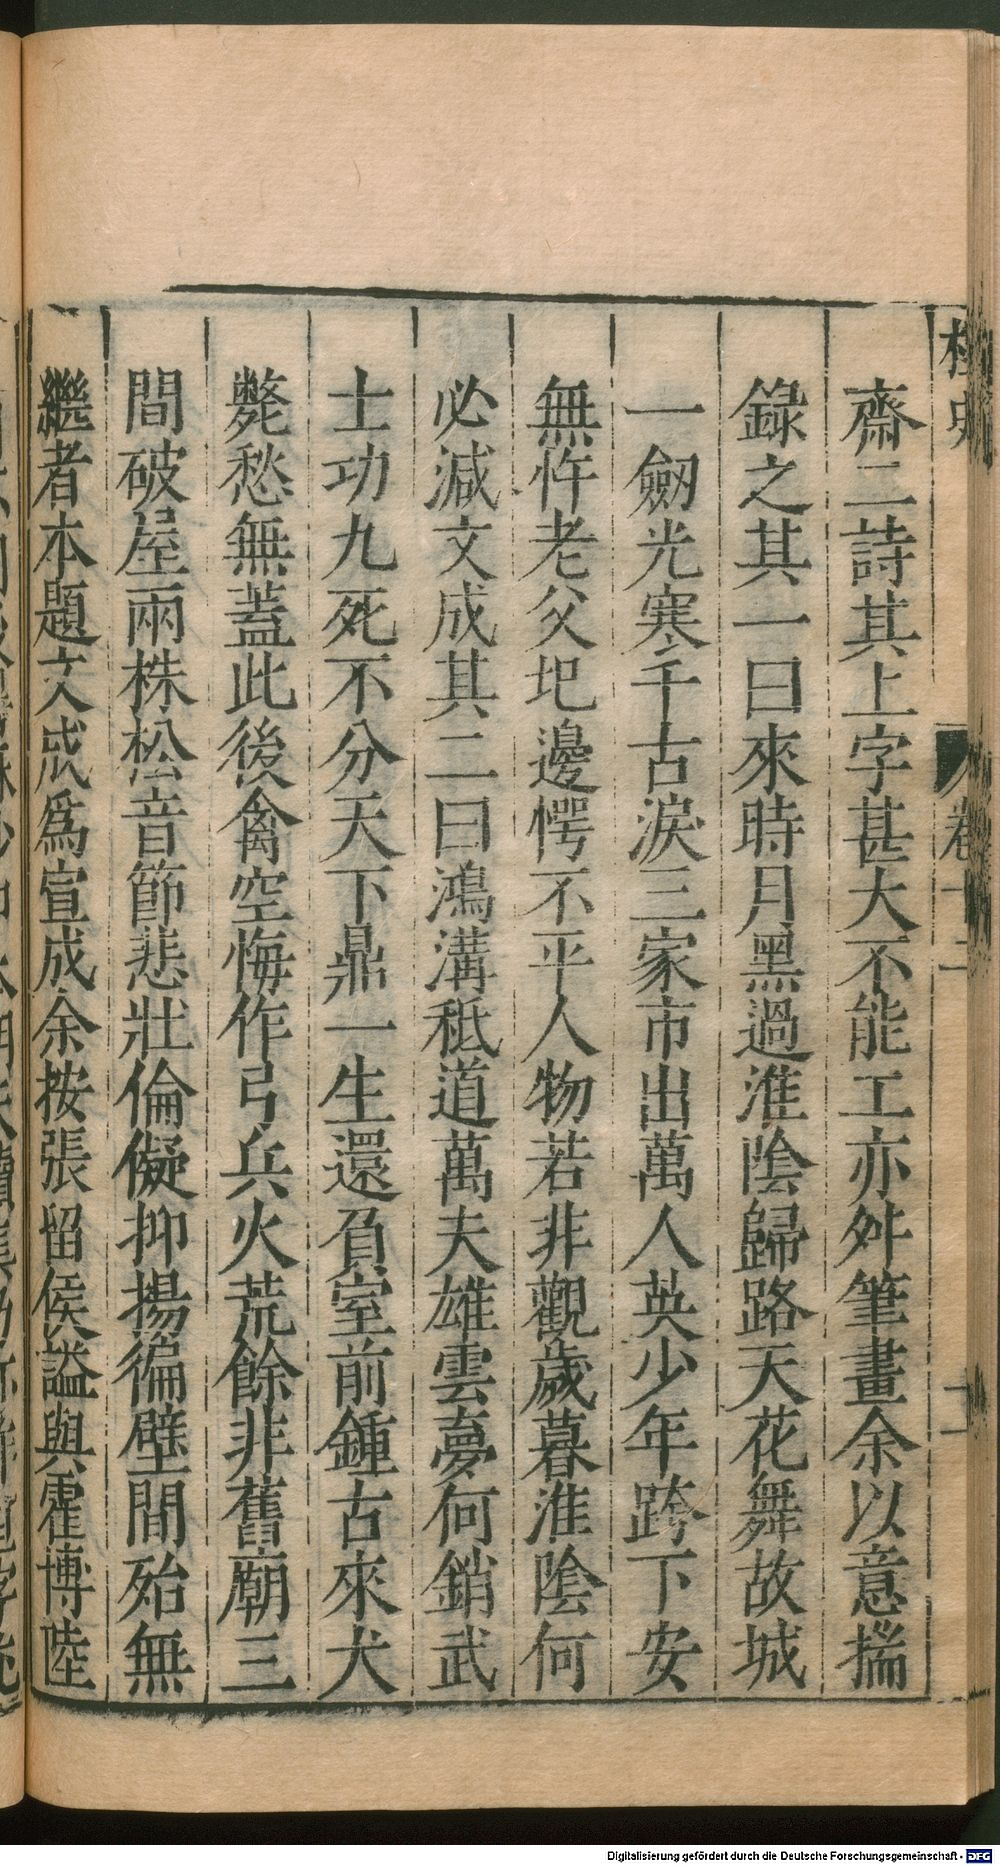 桯史
卷十二
齋二詩其上字甚大不能工亦舛筆畫余以意揣
錄之其一曰來時月黑過淮陰歸路天花舞故城
一劒光寒千古淚三家市出萬人英少年跨下安
無忤老父圯邊愕不平人物若非觀歲暮淮陰何
必減文成其二曰鴻溝秪道萬夫雄雲夢何銷武
士功九死不分天下鼎一生還負室前鍾古來犬
斃愁無蓋此後禽空悔作弓兵火荒餘非舊廟三
間破屋兩株松音節悲壯倫儗抑揚徧壁間殆無
繼者本題文成爲宣成余按張留侯謚與霍博陸
Digitalisierung gefördert durch die Deutsche Forschungsgemeinschaft - DFG